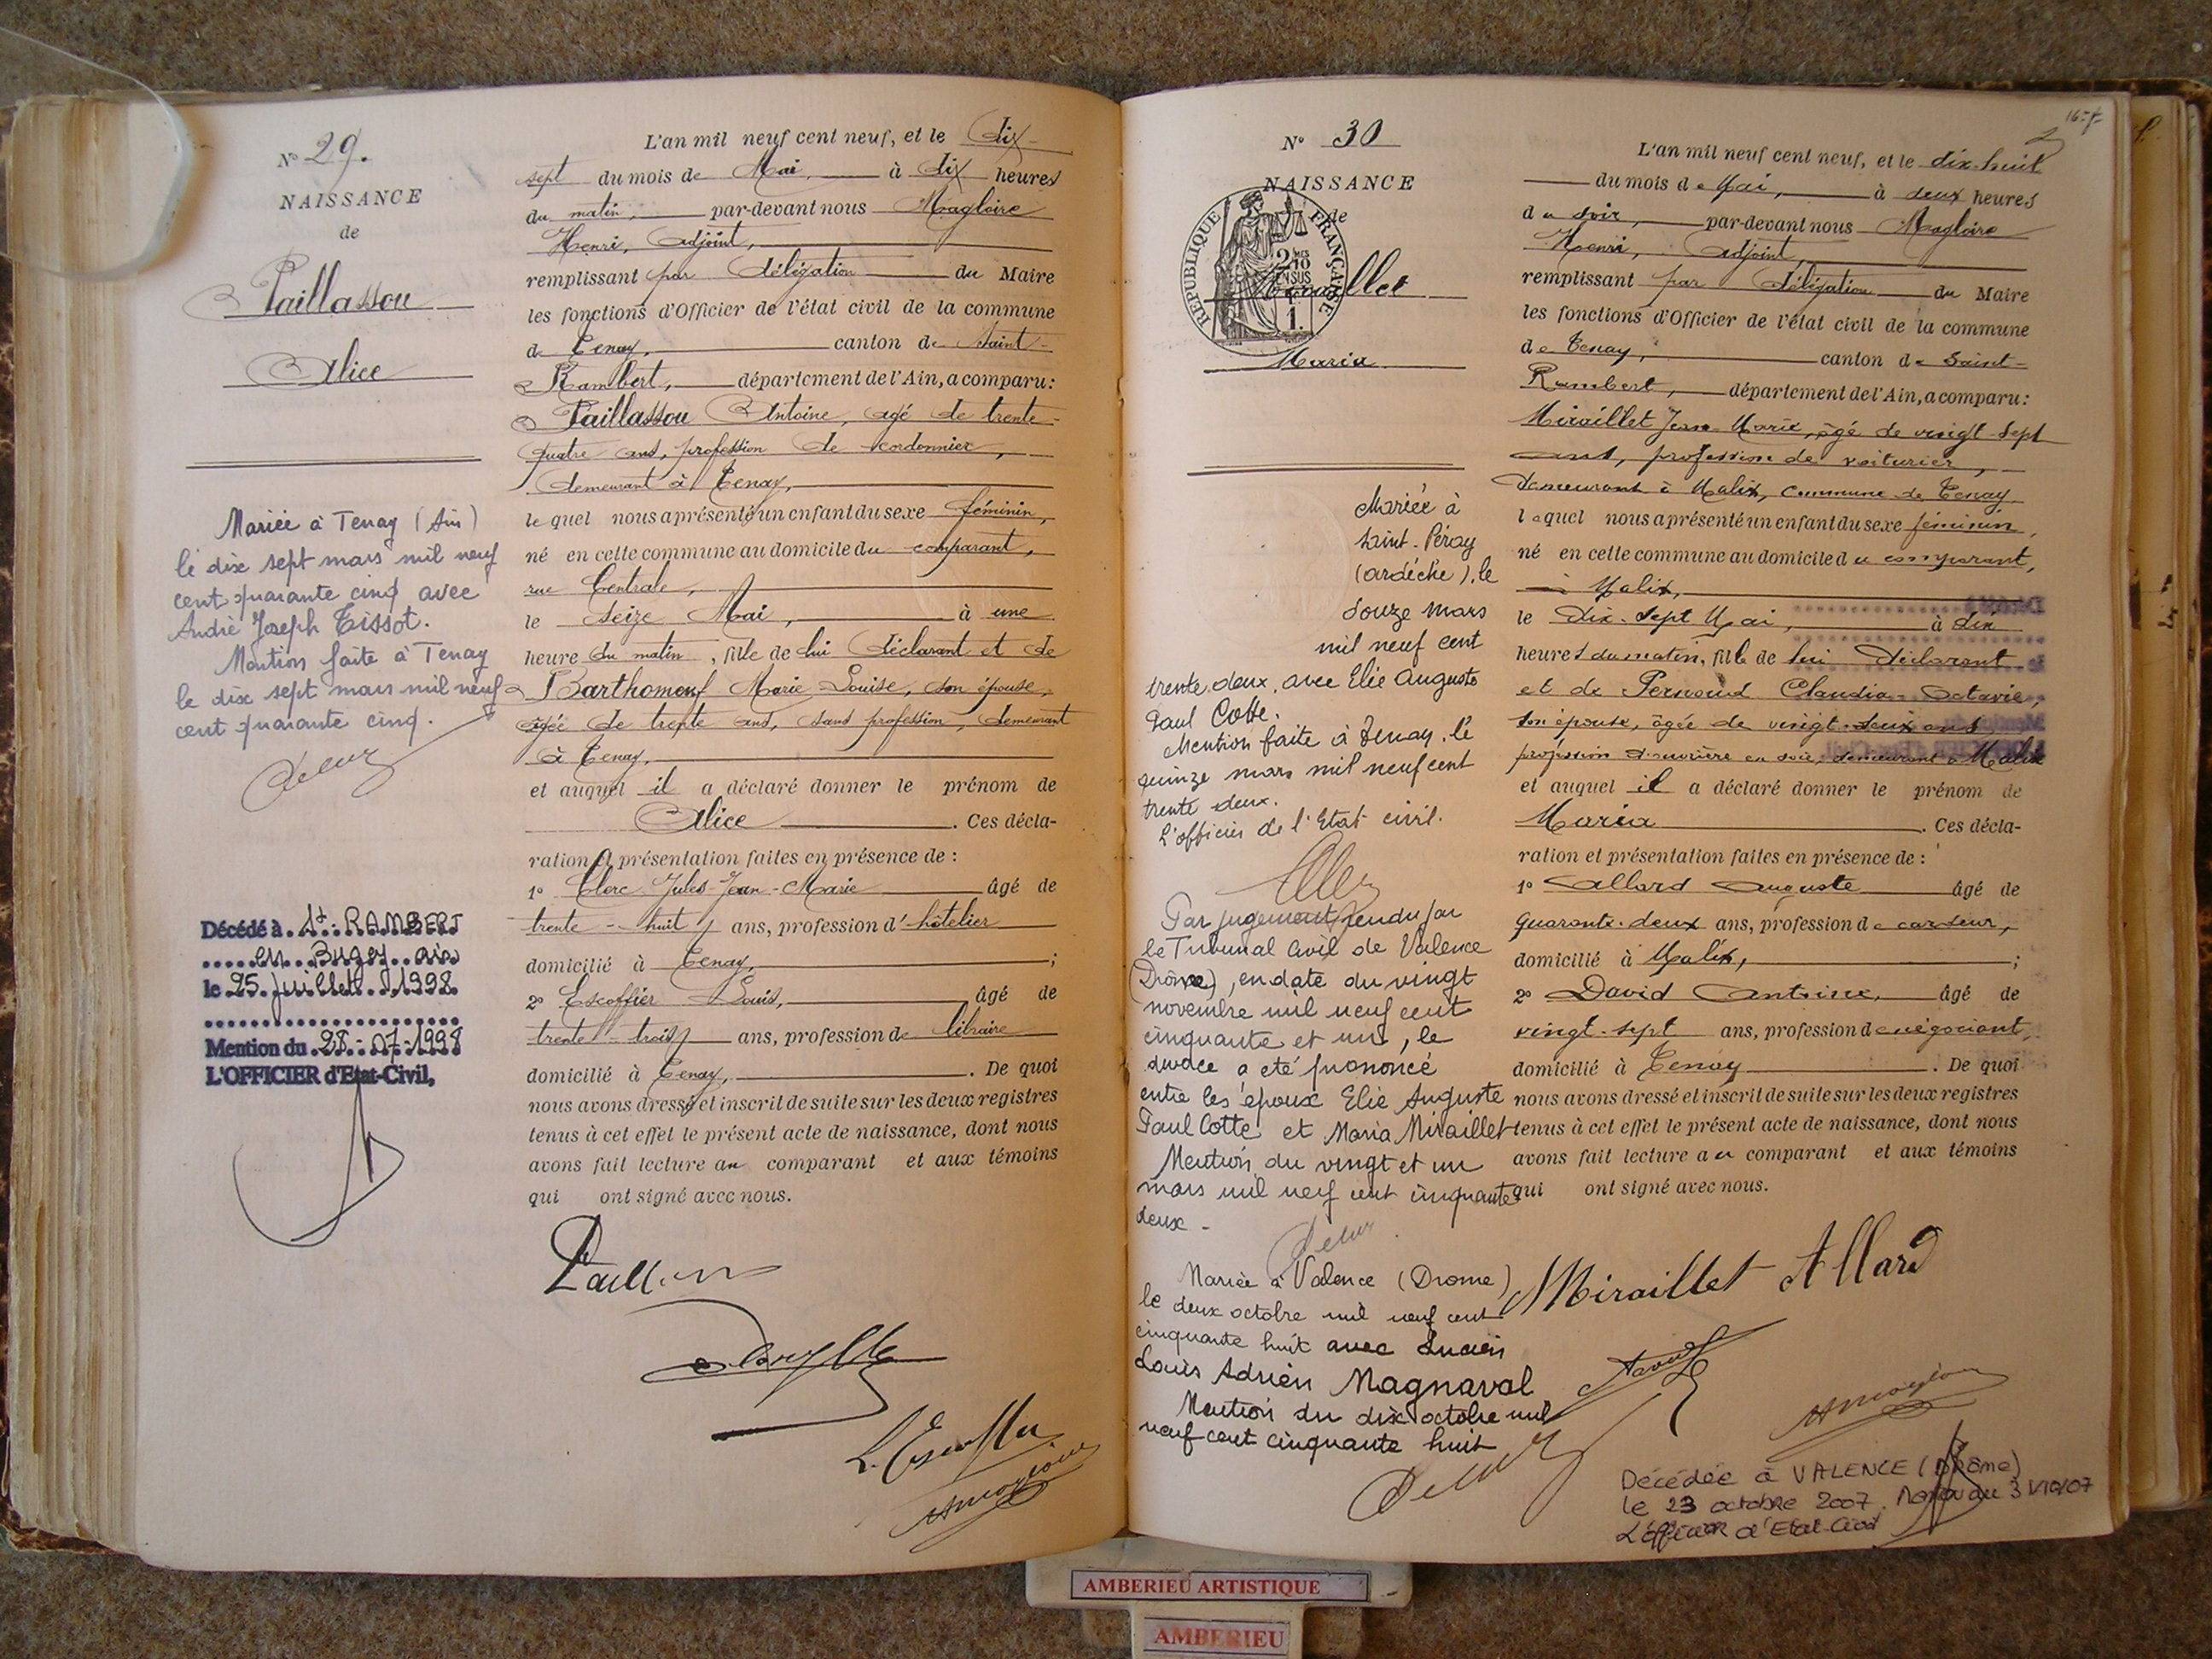 N° 29.
NAISSANCE
de
Paillassou
Alice
Mariée à Tenay (Ain)
le dix sept mars mil neuf
cent quarante cinq avec
André Joseph Tissot.
Mention faite à Tenay
le dix sept mars mil neuf
cent quarante cinq.
Décédé à St. RAMBERT
en Bugey ain
le 25 juillet 1998
Mention du 28-07-1998
L'OFFICIER d'Etat-Civil,
L'an mil neuf cent neuf, et le dix-
sept du mois de Mai, à dix heures
du matin, par-devant nous Magloire
Henri, Adjoint,
remplissant par délégation du Maire
les fonctions d'Officier de l'état civil de la commune
de Tenay, canton de Saint-
Rambert, département de l'Ain, a comparu:
Paillassou Antoine, âgé de trente-
quatre ans, profession de cordonnier,
demeurant à Tenay,
lequel nous a présenté un enfant du sexe féminin,
né en cette commune au domicile du comparant,
rue Centrale,
le seize Mai, à une
heure du matin, fille de lui déclarant et de
Barthomeuf Marie Louise, son épouse,
âgée de trente ans, sans profession, demeurant
à Tenay,
et auquel il a déclaré donner le prénom de
Alice. Ces décla-
ration et présentation faites en présence de :
1° Clerc Jules-Jean-Marie âgé de
trente-huit ans, profession d'hôtelier
domicilié à Tenay, ;
2° Escoffier Louis, âgé de
trente-trois ans, profession de libraire
domicilié à Tenay, . De quoi
nous avons dressé et inscrit de suite sur les deux registres
tenus à cet effet le présent acte de naissance, dont nous
avons fait lecture au comparant et aux témoins
qui ont signé avec nous.
L. Escoffier
N° 30
NAISSANCE
de
REPUBLIQUE FRANÇAISE
2 MES
10
EN SUS
1.
Miraillet
Maria
Mariée à
Saint-Péray
(ardèche), le
douze mars
mil neuf cent
trente deux, avec Elie Auguste
Paul Cotte.
Mention faite à Tenay, le
quinze mars mil neuf cent
trente deux.
L'officier de l'Etat civil.
Par jugement rendu par
le Tribunal Civil de Valence
(Drôme), en date du vingt
novembre mil neuf cent
cinquante et un, le
divorce a été prononcé
entre les époux Elie Auguste
Paul Cotte et Maria Miraillet
Mention du vingt et un
mars mil neuf cent cinquante
deux -
Mariée à Valence (Drome)
le deux octobre mil neuf cent
cinquante huit avec Lucien
Louis Adrien Magnaval
Mention du dix octobre mil
neuf cent cinquante huit
L'an mil neuf cent neuf, et le dix-huit
du mois de Mai, à deux heures
du soir, par-devant nous Magloire
Henri, adjoint,
remplissant par délégation du Maire
les fonctions d'Officier de l'état civil de la commune
de Tenay, canton de Saint-
Rambert, département de l'Ain, a comparu:
Miraillet Jean-Marie, âgé de vingt sept
ans, profession de voiturier,
demeurant à Malix, commune de Tenay
lequel nous a présenté un enfant du sexe féminin,
né en cette commune au domicile du comparant,
à Malix,
le dix-sept Mai, à dix
heures du matin, fille de lui déclarant
et de Pernoud Claudia-Octavie,
son épouse, âgée de vingt-deux ans
profession d'ouvrière en soie, demeurant à Malix
et auquel il a déclaré donner le prénom de
Maria. Ces décla-
ration et présentation faites en présence de :
1° Allard Auguste âgé de
quarante-deux ans, profession de cardeur,
domicilié à Malix, ;
2° David Antoine, âgé de
vingt-sept ans, profession de négociant,
domicilié à Tenay. De quoi
nous avons dressé et inscrit de suite sur les deux registres
tenus à cet effet le présent acte de naissance, dont nous
avons fait lecture au comparant et aux témoins
qui ont signé avec nous.
Miraillet Allard
David
Décédée à VALENCE (Drôme)
le 23 octobre 2007. Mention du 31/10/07
L'officier d'Etat-Civil
AMBERIEU ARTISTIQUE
AMBERIEU